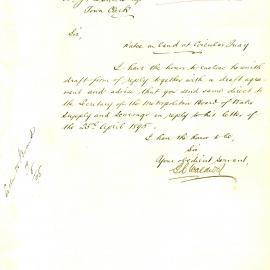 Town Clerk
Sir,
Wake on Land at Circular Quay
I have the honor to enclose herewith
draft form of reply together with a draft agree
ment and advise that you send same direct
to the Secretary of the Metropolitan Board of Water
Supply and Sewerage in reply to his letter of
the 25th April 1895.
I have the honor to be,
Sir
Your obedient servant,